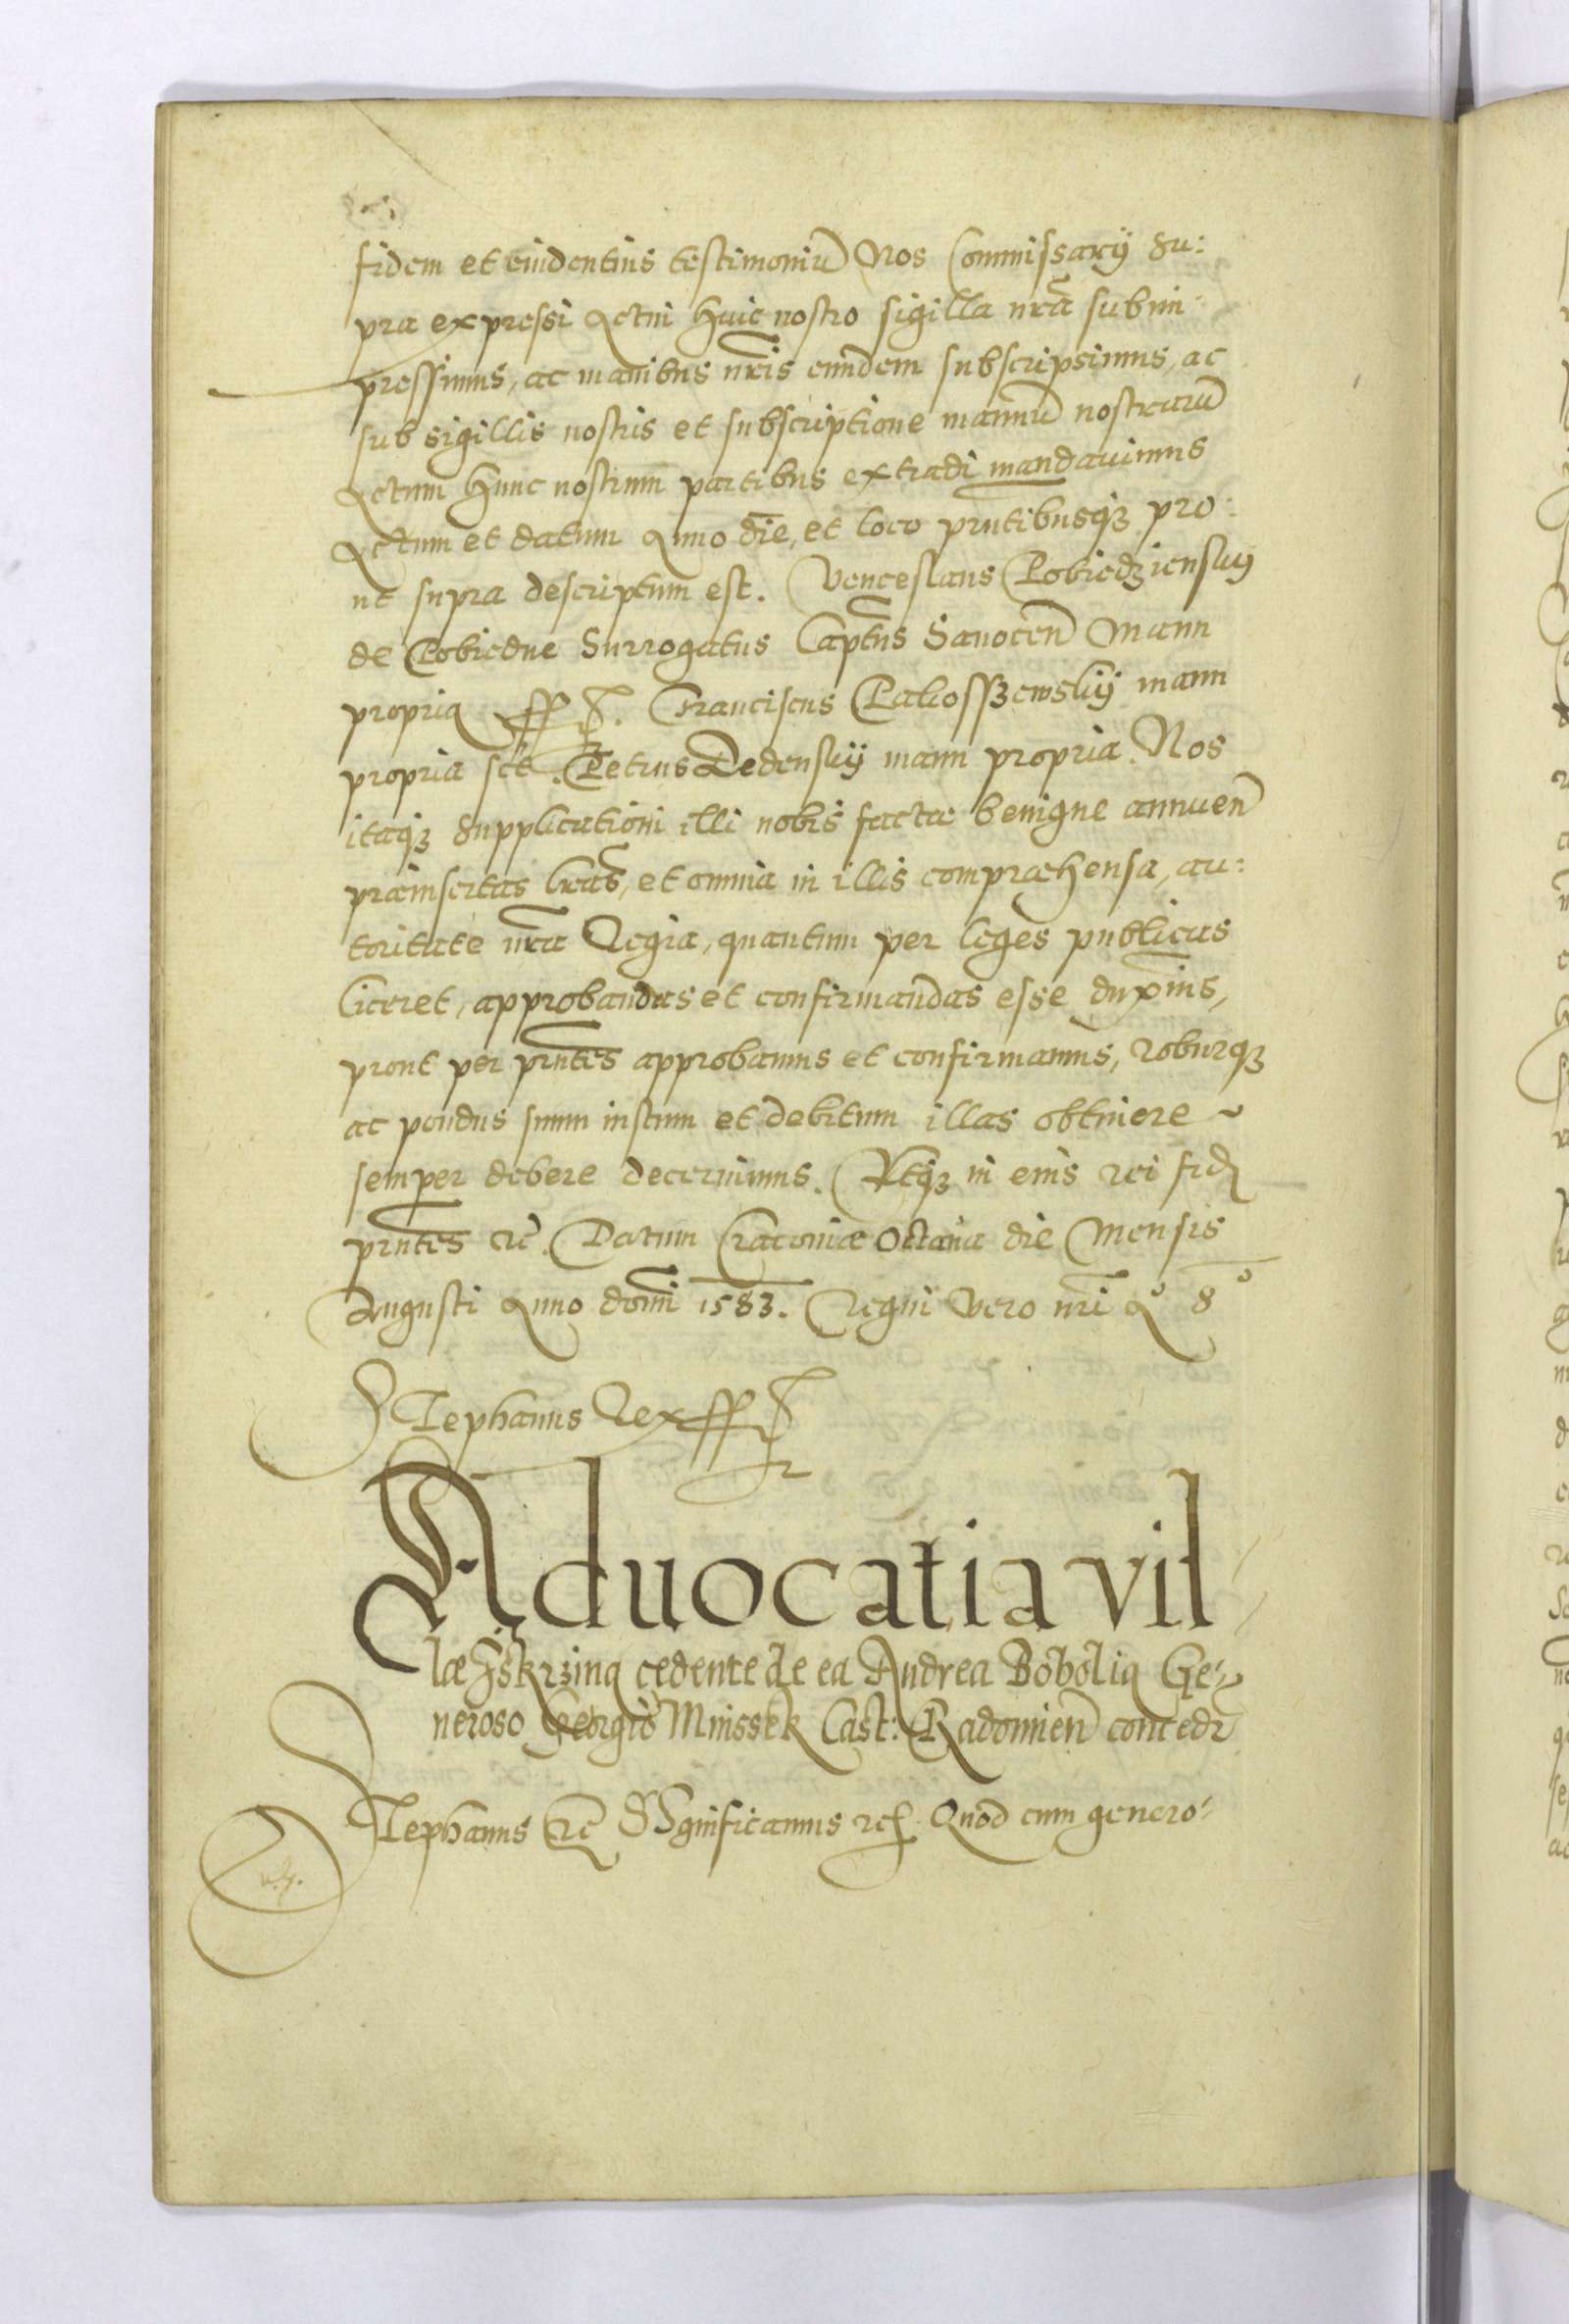 fidem et euidentius testimoniũ Nos Commissarij su:
pra expressi Actui huic nostro sigilla nrã subim
pressimus, ac manibus nrĩs eundem subscripsimus, ac
sub sigillis nostris et subscriptione manuũ nostrarũ
Actum hunc nostrum partibus extradi mandauimus
Actum et datum Anno die, et loco pñtibusqꝫ pro:
ut supra descriptum est. Venceslaus Pobiedziensky
de Pobiedne Surrogatus Captũs Sanoceñ Manu
propria sst. Franciscus Pakosszewskij manu
propria sst. Petrus Dedenskij manu propria. Nos
itaqꝫ supplicationi illi nobis factæ benigne annueñ
præinsertas lrãs, et omnia in illis compræhensa, au:
toritate nrã Regia, quantum per leges publicas
liceret, approbandas et confirmandas esse duximus,
prout per pñtes approbamus et confirmamus, roburqꝫ
ac pondus suum iustum et debitum illas obtinere
semper debere decernimus. Atqꝫ in eius rei fid
pñtes etc. Datum Cracouiæ Octaua die Mensis
Augusti Anno domĩ 1583. Regni vero nrĩ Aº 8º
Stephanus Rex sst
Aduocatia vil
læ Iskrzina cedente de ea Andrea Bobolia Ge
neroso Georgio Mnissek Cast: Radomień concedĩ
Stephanus etc Significamus etc. Quod cum genero